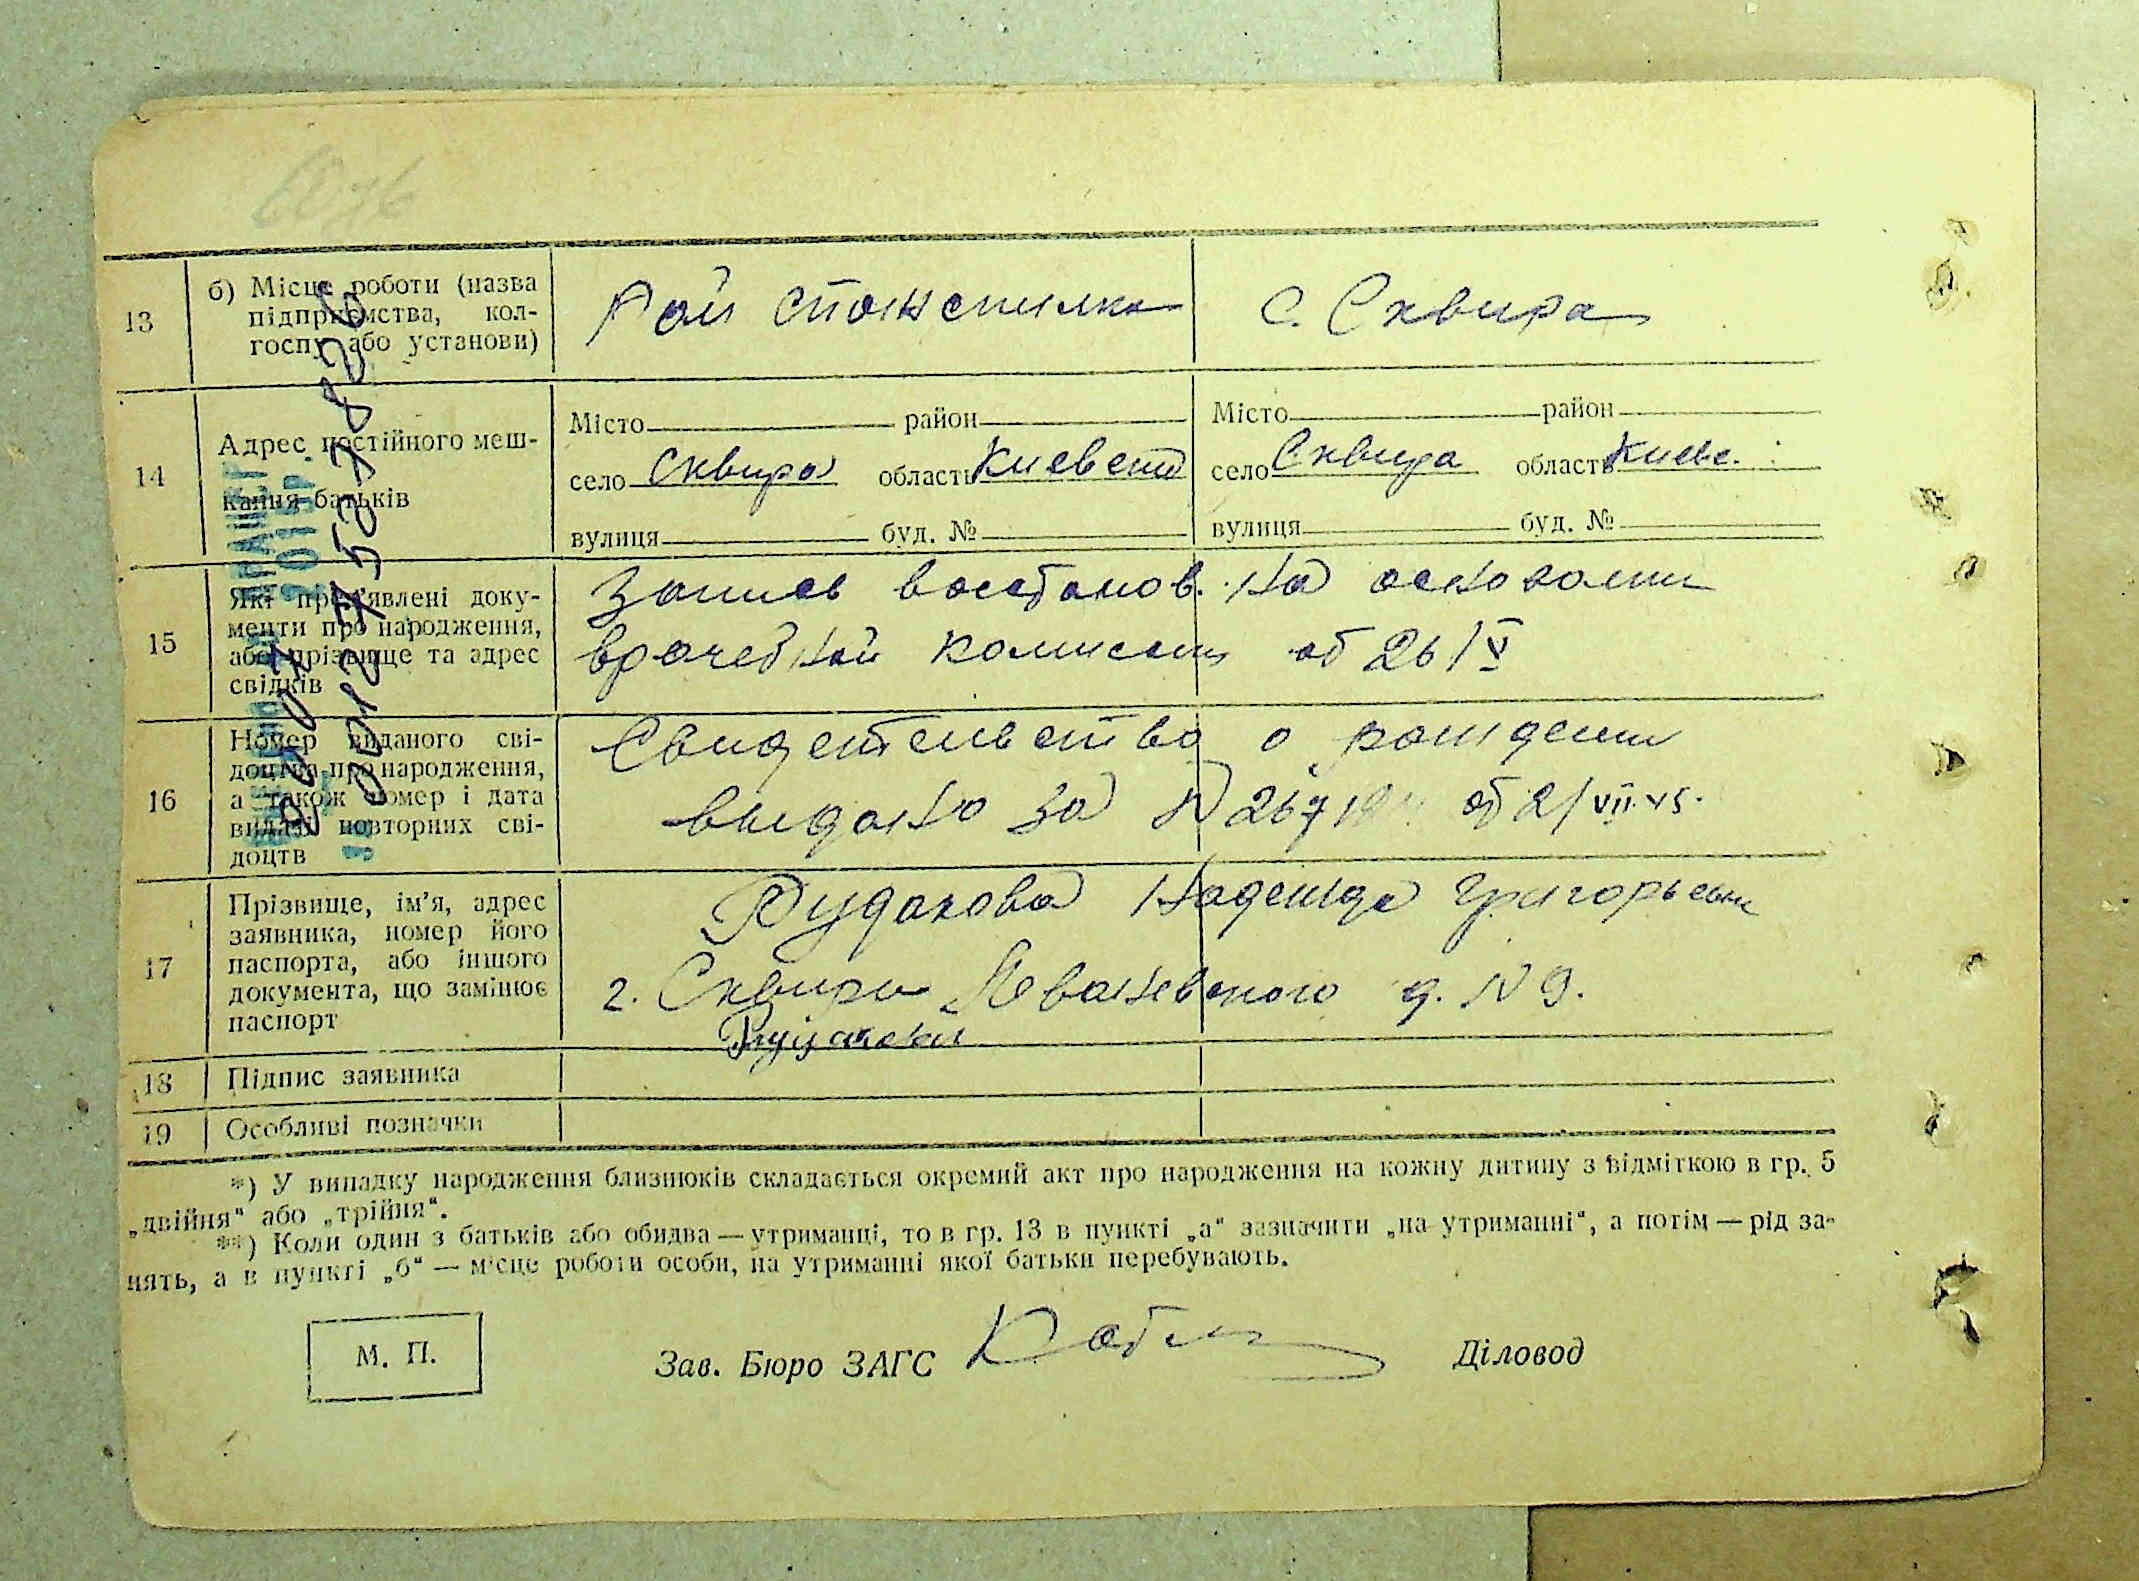 13
б) Місце роботи (назва
підприємства, кол-
госпу або установи)
Рай спож спилка
с. Сквира
14
Адрес постійного меш-
кання батьків
Місто район
село Сквира область Киевск
вулиця буд. №
Місто район
село Сквира область Киевс.
вулиця буд. №
15
Які пред'явлені доку-
менти про народження,
або прізвище та адрес
свідків
Запись восстанов. на основании
врачебной комиссии от 26/V
16
Номер виданого сві-
доцтва про народження,
а також номер і дата
видачі повторних сві-
доцтв
Свидетельство о рождении
выдано за N от 2/VII.45.
17
Прізвище, ім'я, адрес
заявника, номер його
паспорта, або іншого
документа, що замінює
паспорт
Рудакова Надежда Григорьевн
г. Сквира Леваневского д. N 9.
Рудакова
18
Підпис заявника
19
Особливі позначки
*) У випадку народження близнюків складається окремий акт про народження на кожну дитину з відміткою в гр. 5
„двійня" або „трійня".
**) Коли один з батьків або обидва — утриманці, то в гр. 13 в пункті „а" зазначити „на утриманні", а потім — рід за-
нять, а в пункті „б" — місце роботи особи, на утриманні якої батьки перебувають.
М. П.
Зав. Бюро ЗАГС
Діловод